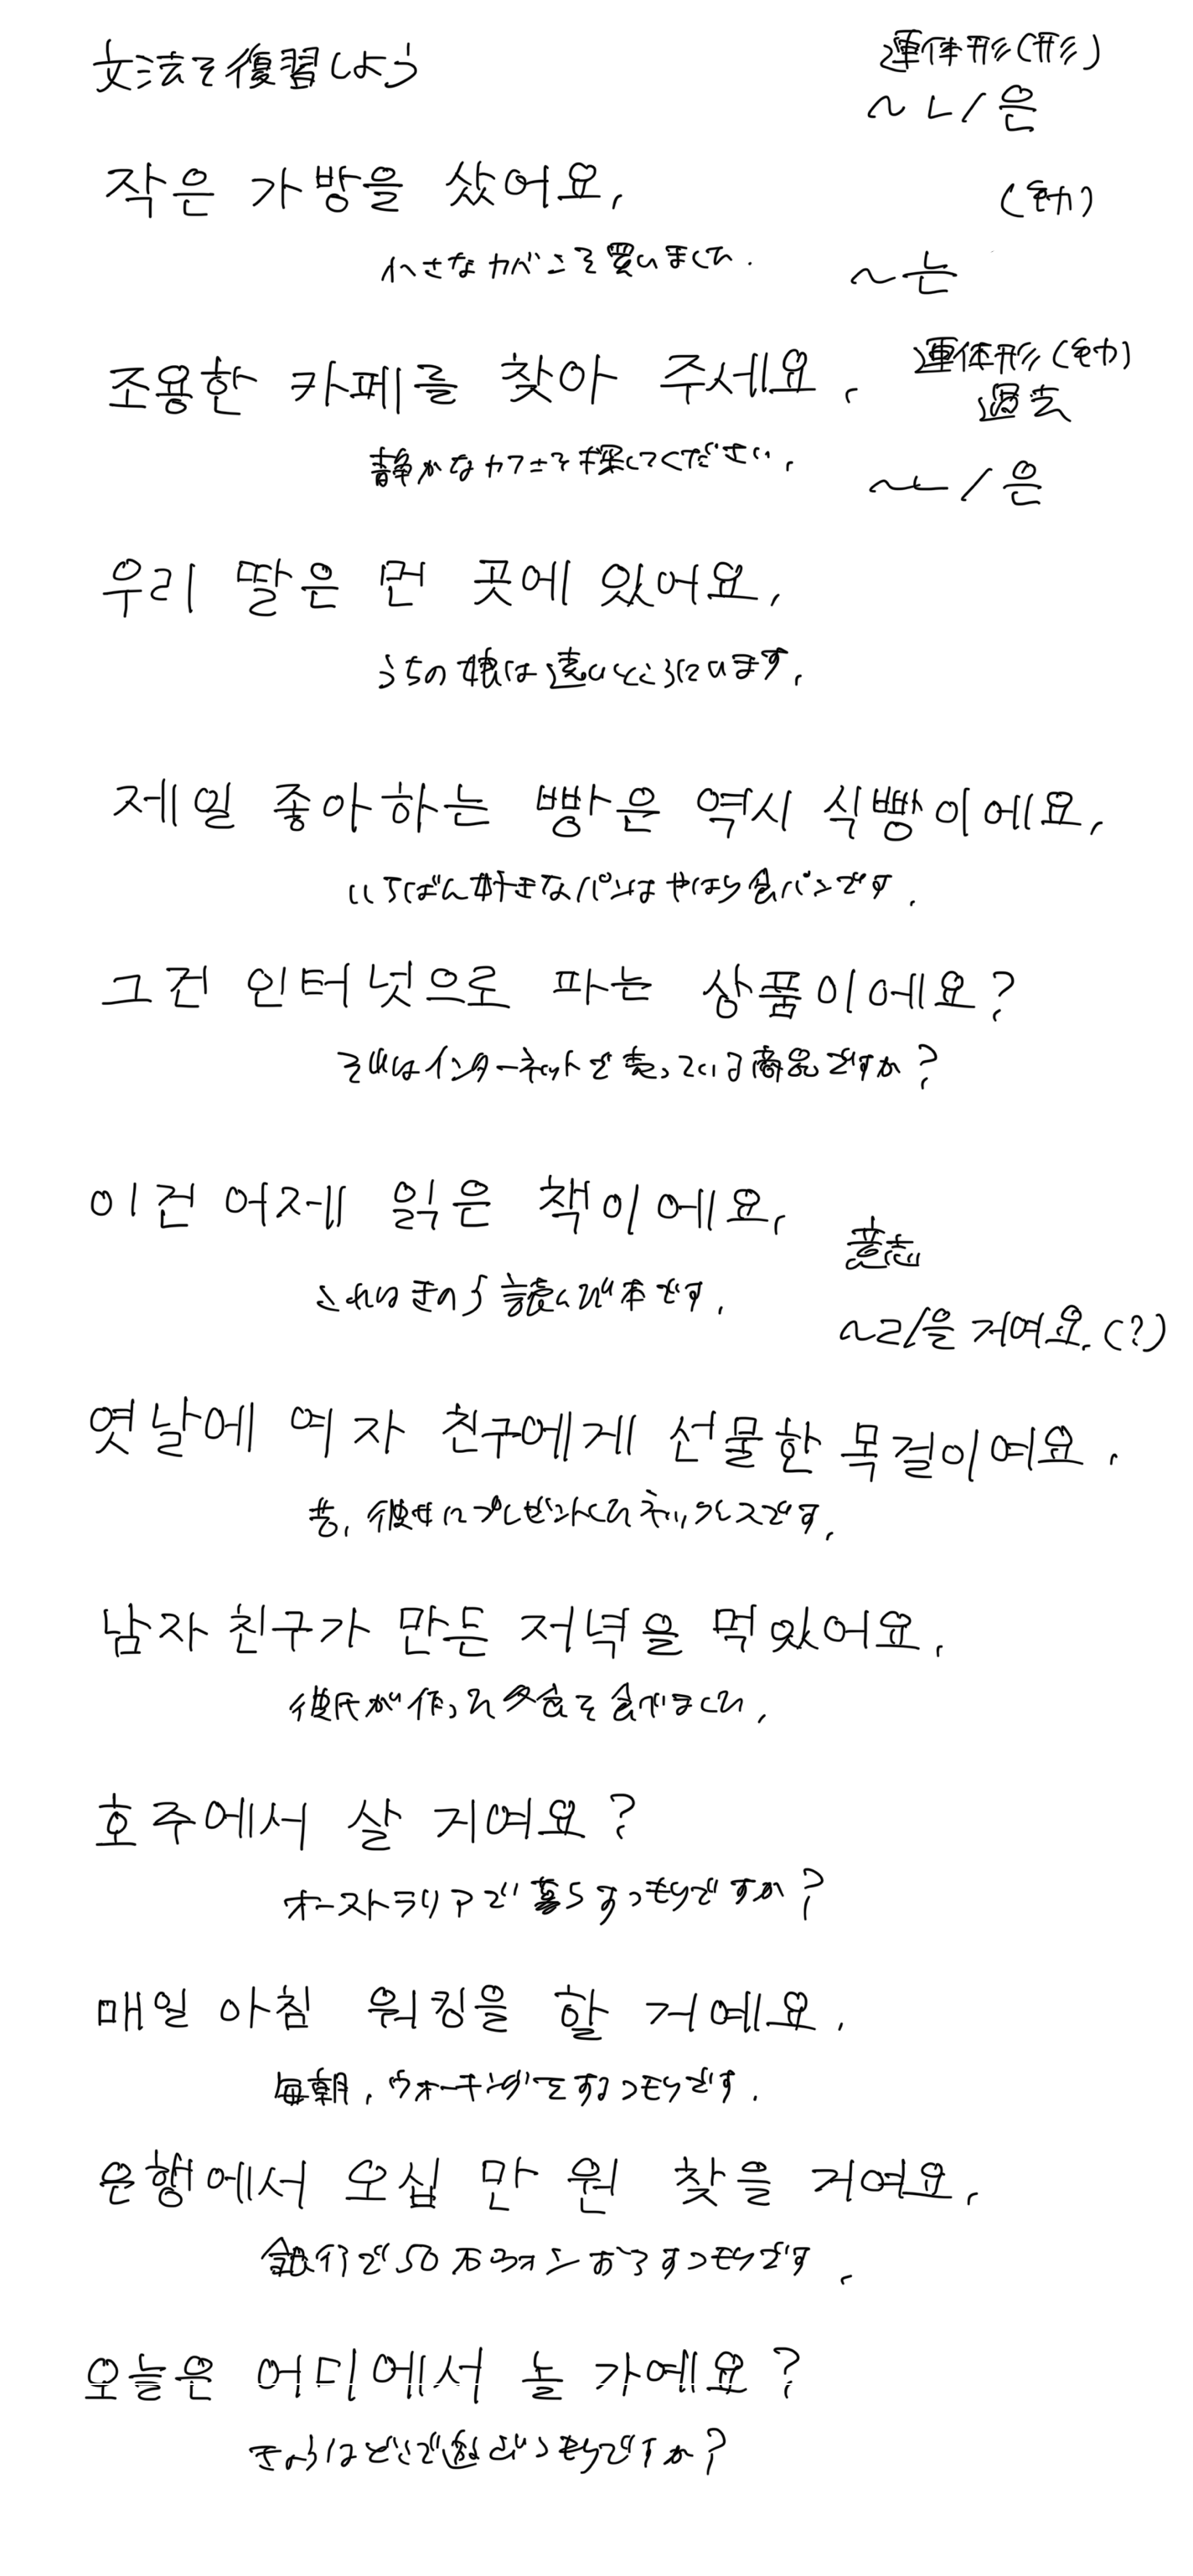 文法を復習しよう
連体形(形)
~ㄴ/은
작은 가방을 샀어요.
(動)
小さなカバンを買いました.
~는
連体形(動)
過去
조용한 카페를 찾아 주세요.
静かなカフェを探してください.
~ㄴ/은
우리 딸은 먼 곳에 있어요.
うちの娘は遠いところにいます.
제일 좋아하는 빵은 역시 식빵이에요.
いちばん好きなパンはやはり食パンです.
그건 인터넷으로 파는 상품이에요?
それはインターネットで売っている商品ですか?
이건 어제 읽은 책이에요.
意志
これはきのう読んだ本です.
~ㄹ/을 거여요.(?)
옛날에 여자 친구에게 선물한 목걸이여요.
昔,彼女にプレゼントしたネックレスです.
남자 친구가 만든 저녁을 먹았어요.
彼氏が作った夕食を食べました.
호주에서 살 거여요?
オーストラリアで暮らすつもりですか?
매일 아침 워킹을 할 거예요.
毎朝,ウォーキングをするつもりです.
은행에서 오십 만 원 찾을 거여요.
銀行で50万ウォンおろすつもりです.
오늘은 어디에서 놀 가예요?
きょうはどこで遊ぶつもりですか?